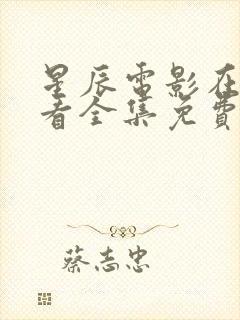 星辰電影在
看全集免費
蔡志忠